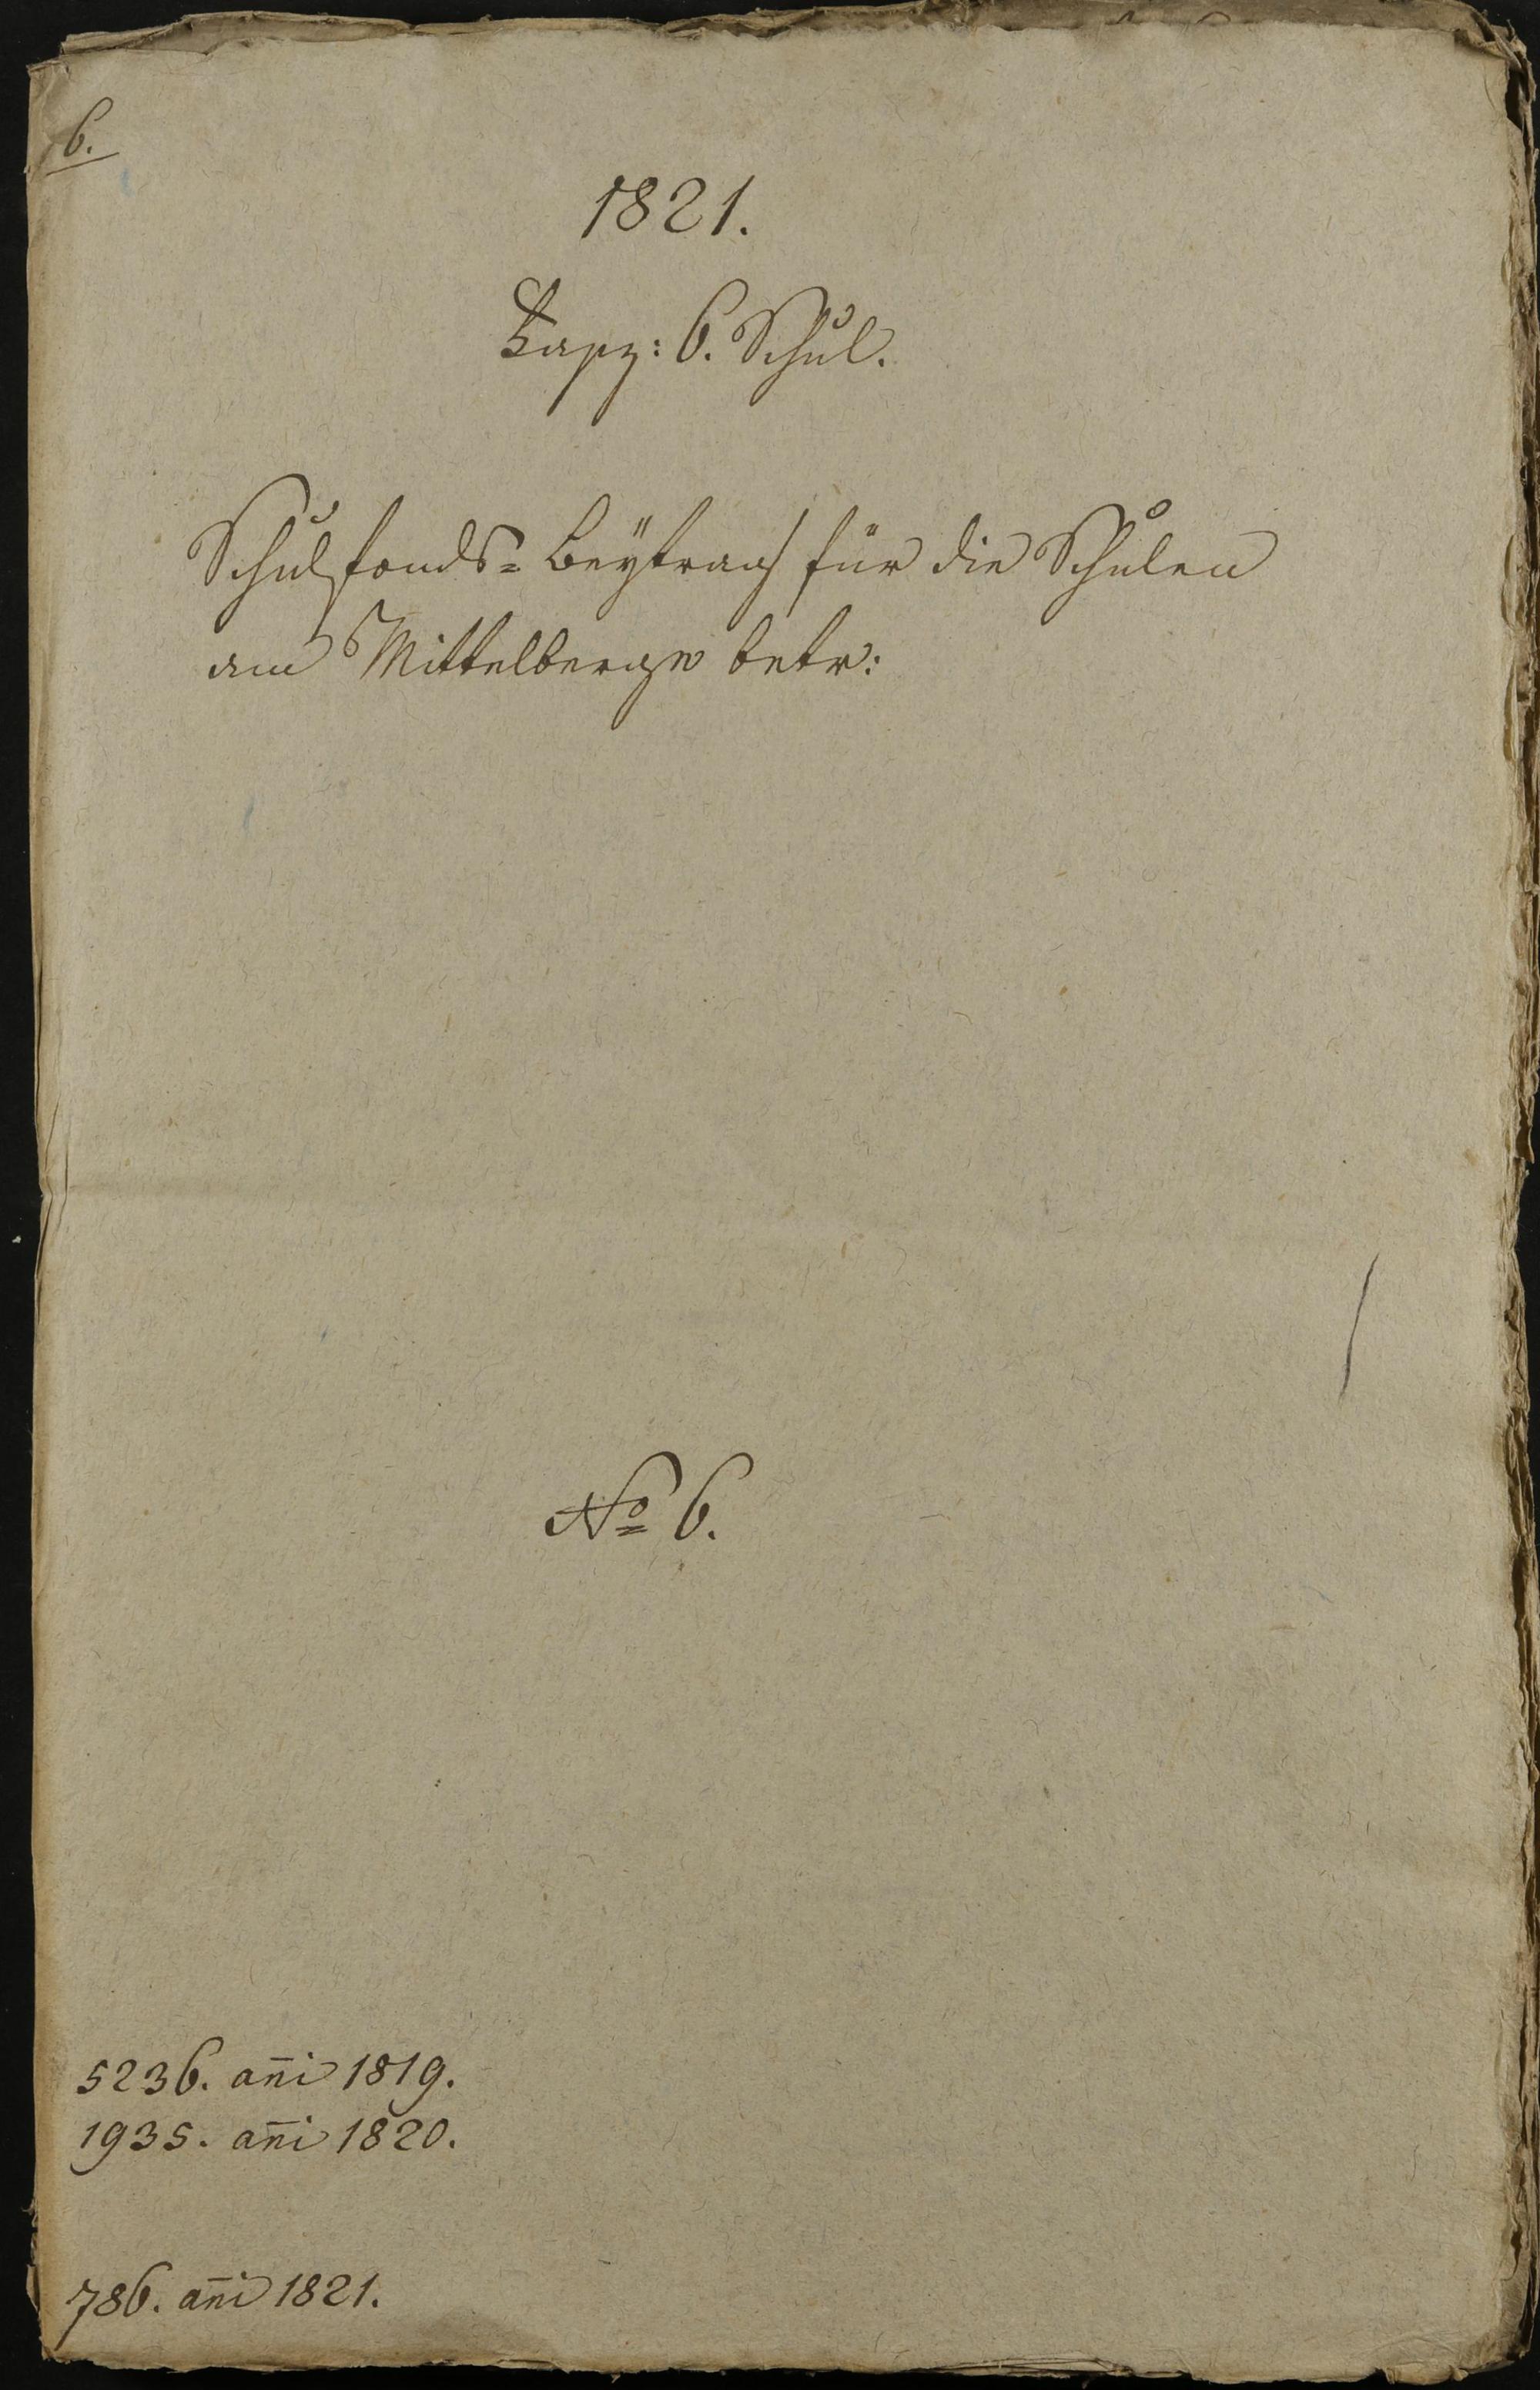 6.
1821.
Fasz: 6. Schul.
Schulfonds= Beÿtrag für die Schulen
am Mittelberge betr:
No 6.
5236. an̄i 1819.
1935. an̄i 1820.
786. an̄i 1821.